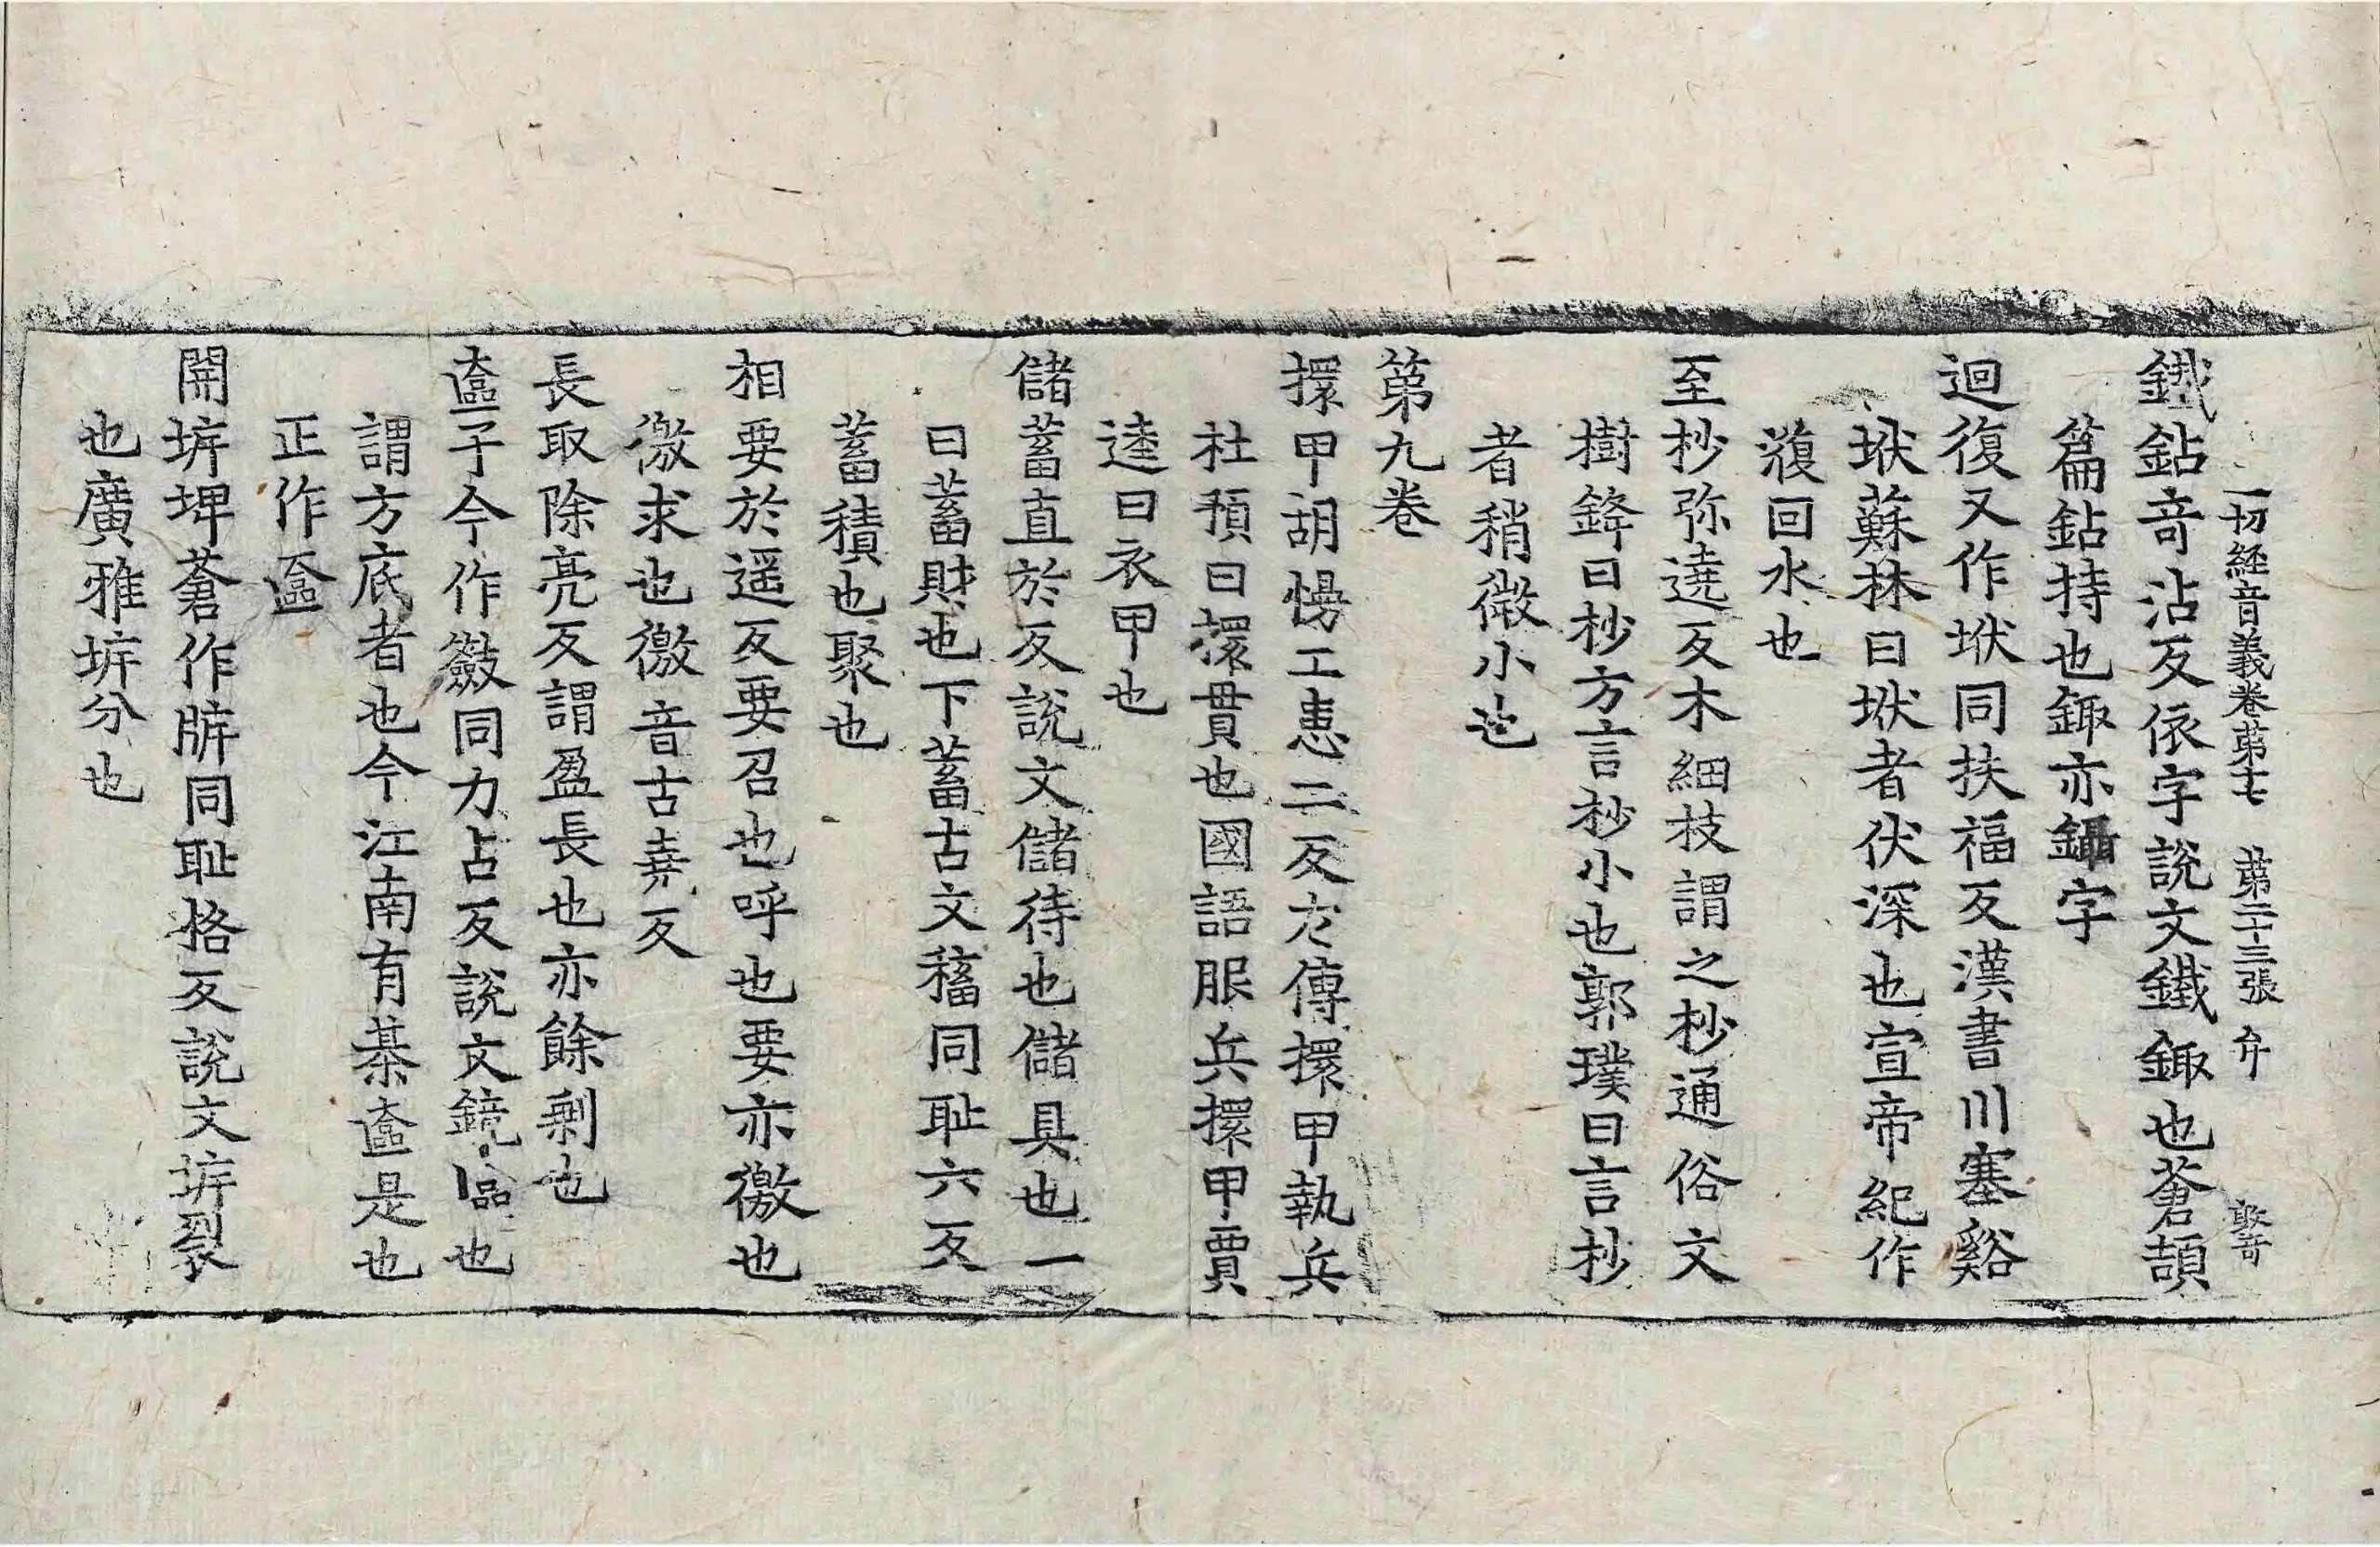 一切經音義卷第十七 第二十三張 弁
鐵鉆奇沾反依字說文鐵鋷也蒼頡
篇鉆持也鋷亦鑷字
迴復又作垘同扶福反漢書川塞谿
垘蘇林曰垘者伏深也宣帝紀作
澓回水也
至杪弥遶反木細枝謂之杪通俗文
樹鋒曰杪方言杪小也郭璞曰言杪
者稍微小也
第九卷
擐甲胡慢工患二反左傳擐甲執兵
杜預曰擐貫也國語服兵擐甲賈
逵曰衣甲也
儲蓄直於反說文儲待也儲具也一
曰蓄財也下蓄古文稸同耻六反
蓄積也聚也
相要於遥反要召也呼也要亦徼也
徼求也徼音古堯反
長取除亮反謂盈長也亦餘剩也
匳子今作籢同力占反說文鏡匳也
謂方底者也今江南有棊匳是也
正作匳
開㡿埤蒼作㡿同耻格反說文㡿裂
也廣雅㡿分也